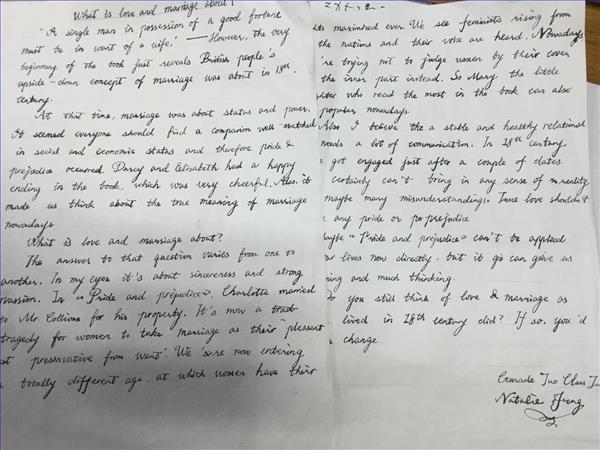 What is love and marriage about?
"A single man in possession of a good fortune
must be in want of a wife." —— However, the very
beginning of the book just reveals British people's
upside-down concept of marriage was about in 18th
century.
At that time, marriage was about status and power.
It seemed everyone should find a companion well-matched
in social and economic status and therefore pride &
prejudice occurred. Darcy and Elizabeth had a happy
ending in the book, which was very cheerful. Also it
made us think about the true meaning of marriage
nowadays
What is love and marriage about?
The answer to that question varies from one to
another. In my eyes it's about sincereness and strong
passion. In «Pride and prejudice», Charlotte married
to Mr. Collions for his property. It's now a
tragedy for women to take marriage as their pleasant
st preservative from want". We're now entering
a totally different age, at which women have their
hts maximized ever. We see feminists rising from
the nations and their vote are heard. Nowadays
're trying not to judge women by their cover
the inner part instead. So Mary, the little
ster who read the most in the book can also
popular nowadays.
Also I believe the a stable and healthy relationsh
needs a lot of communication. In 18th century
got engaged just after a couple of dates.
certainly can't bring in any sense of reality
maybe many misunderstandings. True love shouldn't
any pride or prejudice
aybe «Pride and prejudice» can't be applied
our lives now directly, but it can give us
ing and much thinking.
Do you still think of love & marriage as
lived in 18th century did? If so, you'd
change
Grade Two Class
Natalie